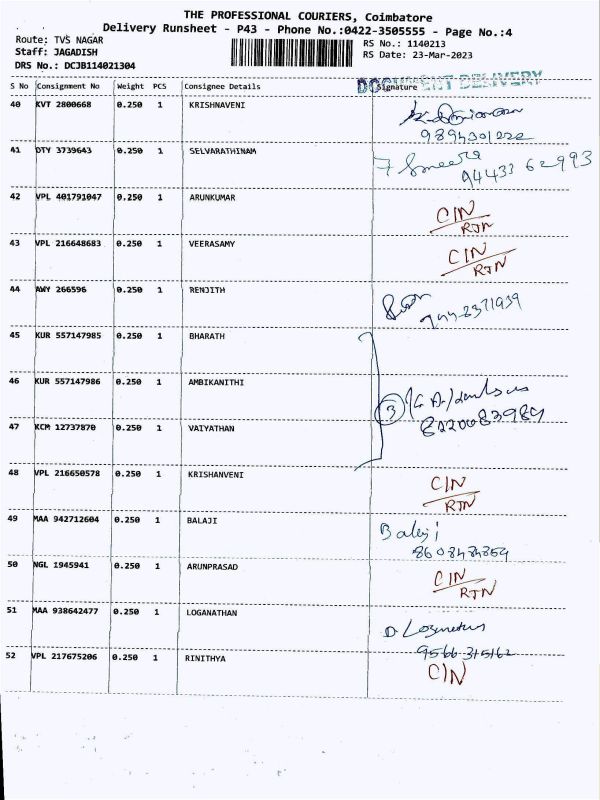 THE PROFESSIONAL COURIERS, Coimbatore
Delivery Runsheet - P43 - Phone No.:0422-3505555 - Page No.:4
Route: TVS NAGAR
RS No.: 1140213
Staff: JAGADISH
RS Date: 23-Mar-2023
DRS No.: DCJB114021304
DOCUMENT DELIVERY
S No Consignment No Weight PCS Consignee Details Signature
40 KVT 2800668 0.250 1 KRISHNAVENI
9894301222
41 DTY 3739643 0.250 1 SELVARATHINAM
94433 62993
42 VPL 401791047 0.250 1 ARUNKUMAR
CIN
RTN
43 VPL 216648683 0.250 1 VEERASAMY
CIN
RTN
44 AWY 266596 0.250 1 RENJITH
45 KUR 557147985 0.250 1 BHARATH
46 KUR 557147986 0.250 1 AMBIKANITHI
3
8220083989
47 KCM 12737870 0.250 1 VAIYATHAN
48 VPL 216650578 0.250 1 KRISHANVENI
CIN
RTN
49 MAA 942712604 0.250 1 BALAJI
Balaji
50 NGL 1945941 0.250 1 ARUNPRASAD
CIN
RTN
51 MAA 938642477 0.250 1 LOGANATHAN
9566315162
52 VPL 217675206 0.250 1 RINITHYA
CIN